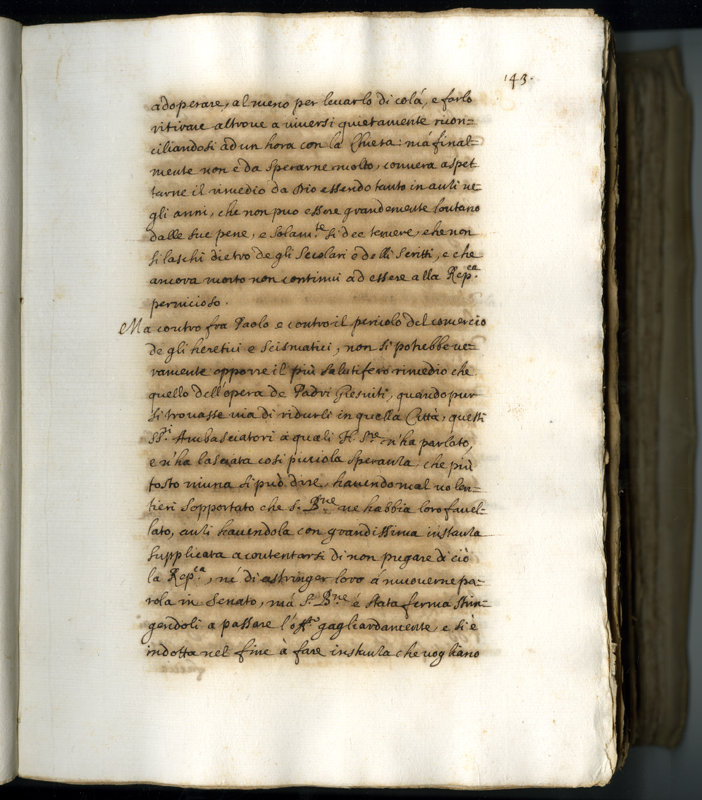 143.
adoperare, al meno per levarlo di colá, e farlo
ritirare altrove a viversi quietamente ricon=
ciliandosi ad un hora con la Chiesa: má final=
mente non e da sperarne molto, converra aspet
tarne il rimedio da Dio essendo tanto in auli ne
gli anni, che non puo essere grandemente lontano
dalle sue pene, e solam.te si dee temere, che non
si laschi dietro de gli Secolari ó delli Scritti, e che
ancora morto non continui ad essere alla Rep.ca
pernicioso.
Ma contro fra Paolo e contro il pericolo del comercio
de gli heretici e Scismatici, non si potrebbe ve=
ramente opporre il piú salutifero rimedio che
quello dell'opera de Padri Giesuiti, quando pur
si trovasse via di ridurli in quella Cittá, questi
SS.ri Ambasciatori a quali N. S.re n'ha parlato,
e n'ha lasciata cosi picciola speranza, che piú
tosto niuna si puó dire, havendo mal volen=
tieri sopportato che S. B.ne ne habbia loro favel=
lato, anzi havendola con grandissima instanza
supplicata a contentarsi di non pregare di ció
la Rep.ca, né di astringer loro á muoverne pa=
rola in Senato, má S. B.ne é stata ferma strin=
gendoli a passare l'off.o gagliardamente, e si é
indotta nel fine à fare instanza che vogliano